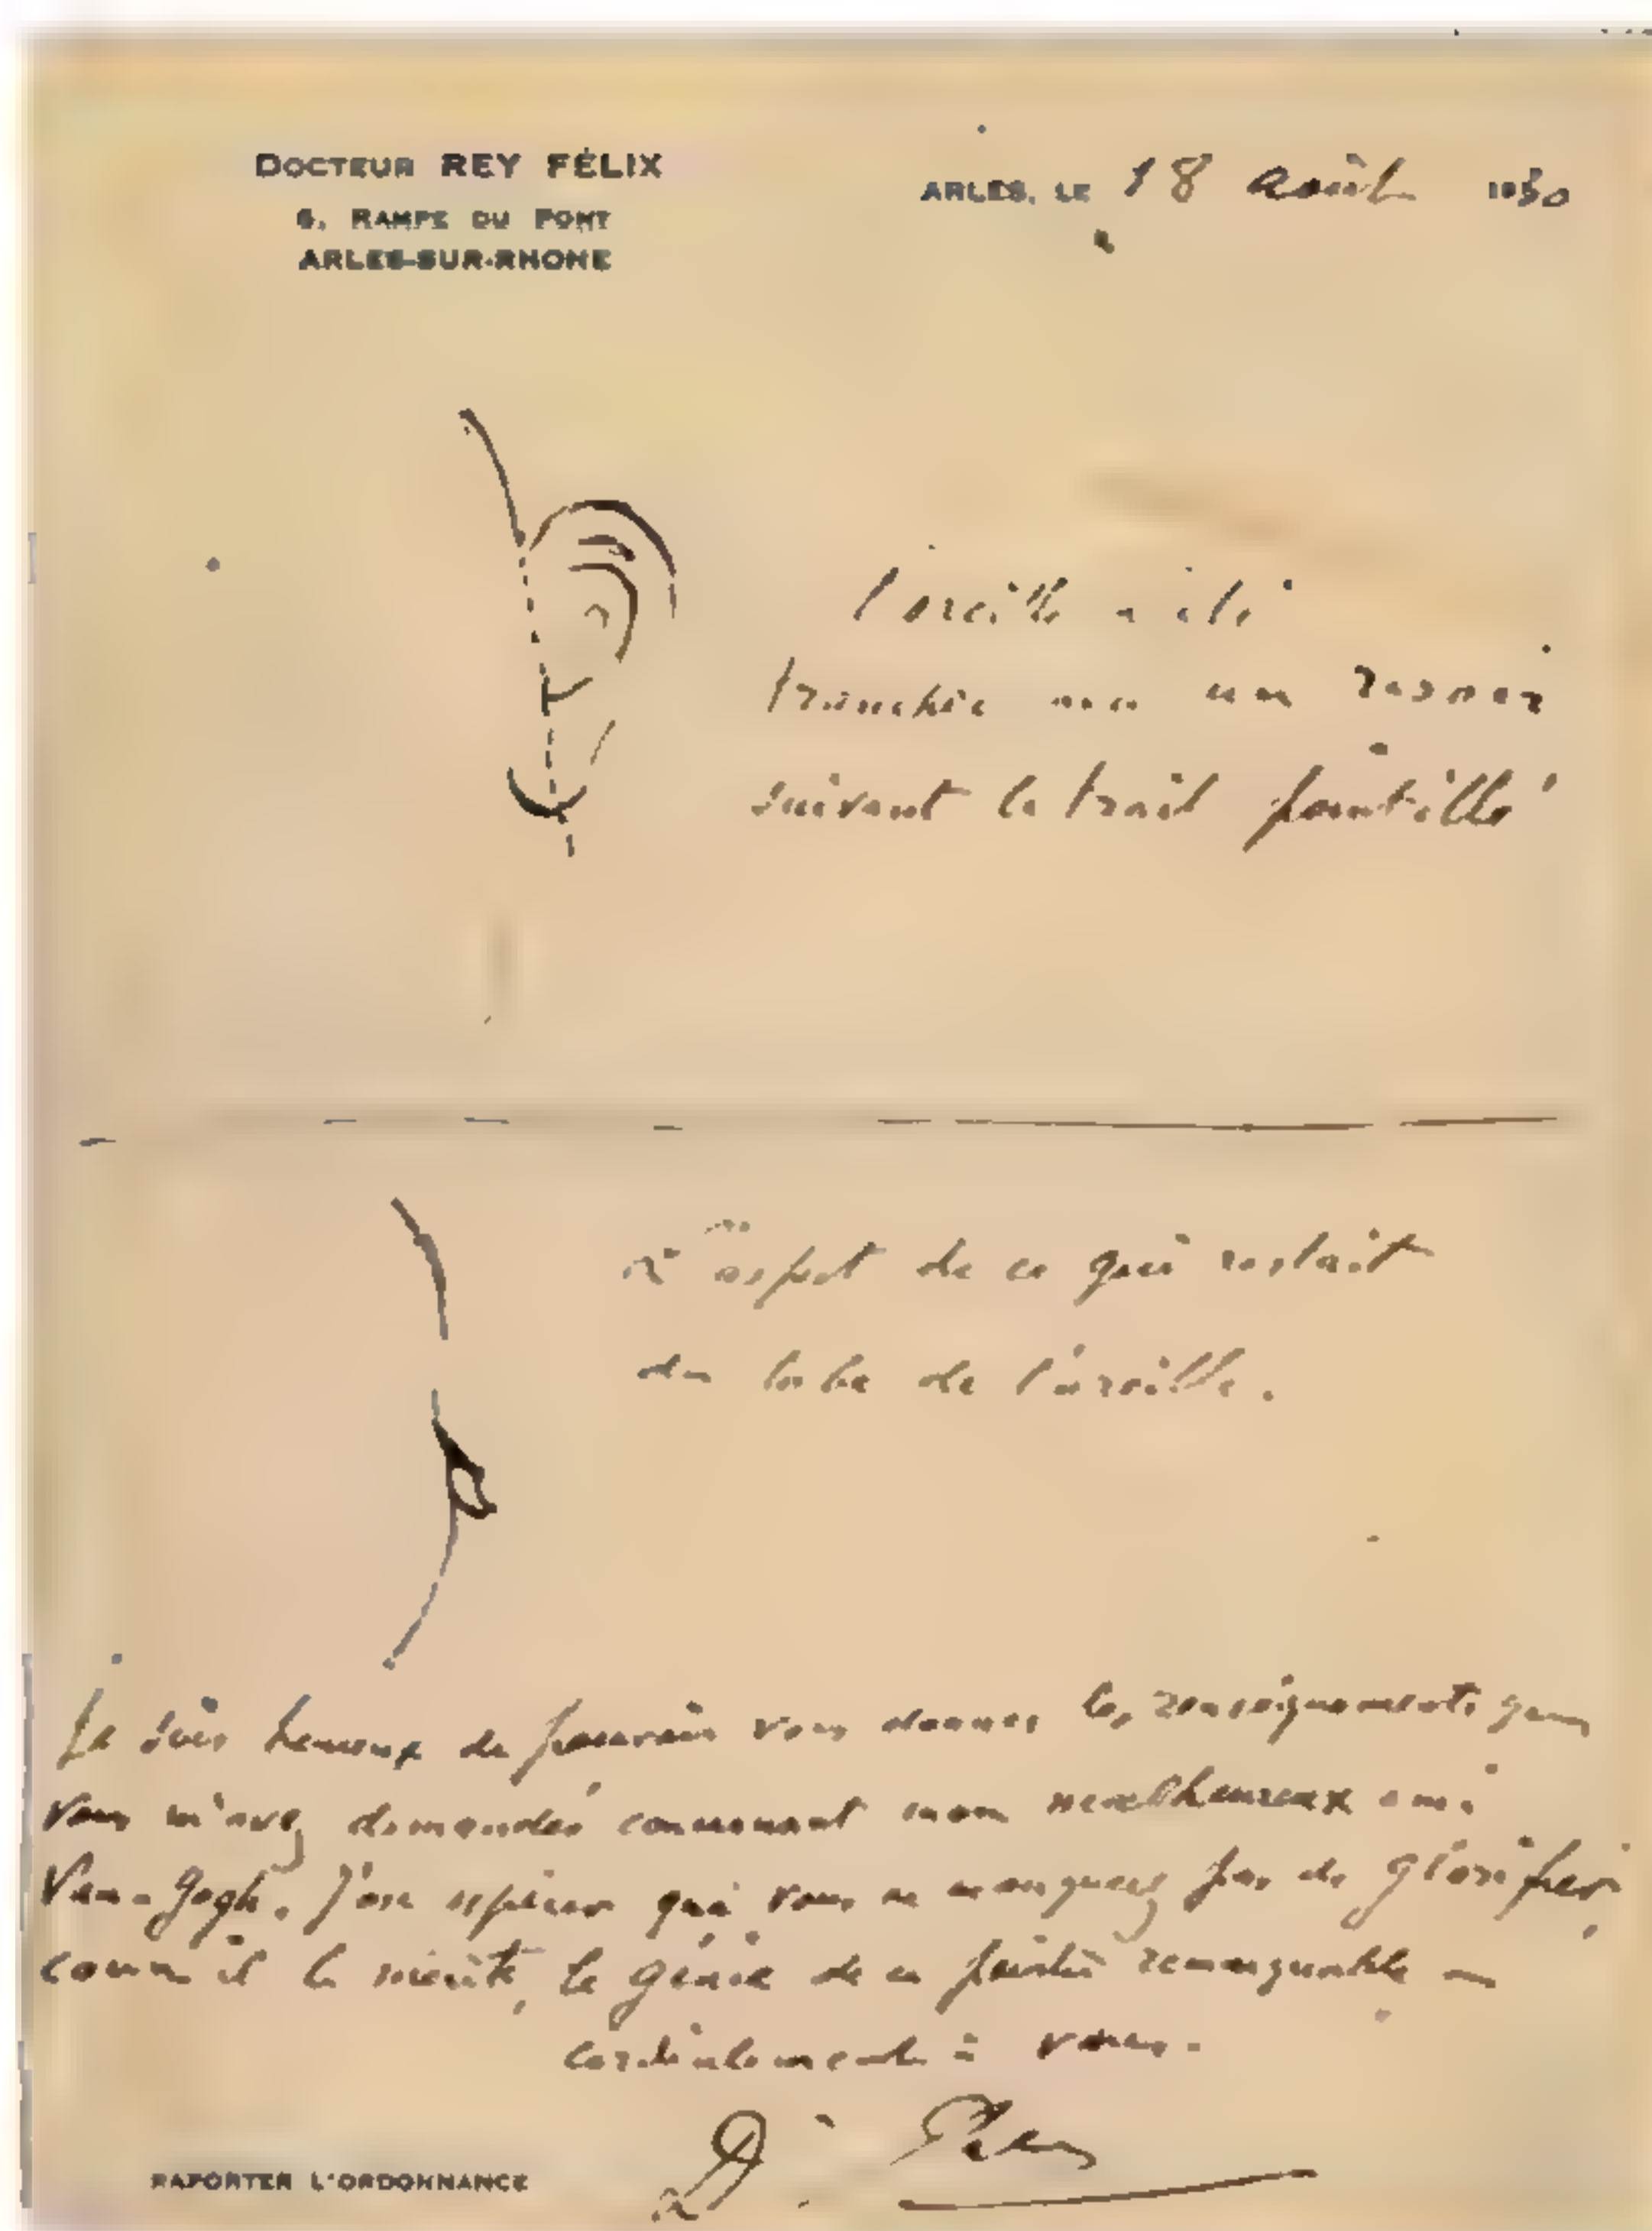 DOCTEUR REY FÉLIX
6, RAMPE DU PONT
ARLES-SUR-RHONE
ARLES, LE 18 août 1930
l'oreille a été
tranchée avec un rasoir
suivant le trait pointillé
L'aspect de ce qui restait
du lobe de l'oreille.
Je suis heureux de pouvoir vous donner les renseignements que
vous m'avez demandés concernant mon malheureux ami
Van-Gogh. J'ose espérer que vous ne manquerez pas de glorifier,
comme il le mérite, le génie de ce peintre remarquable —
cordialement à vous.
Dr Rey
RAPORTER L'ORDONNANCE